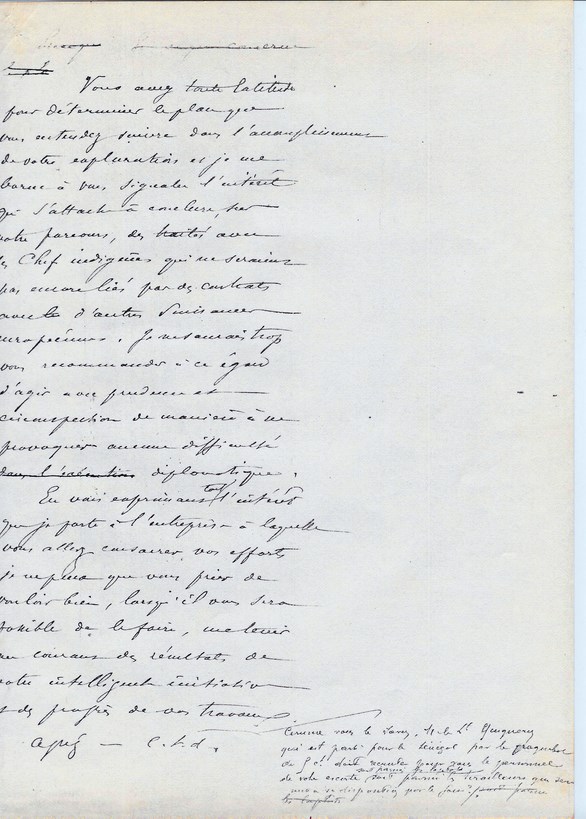 Vous avez toute latitude
pour déterminer le plan que
vous entendez suivre dans l'accomplissement
de votre exploration et je me
borne à vous signaler l'intérêt
qui s'attache à conclure, sur
votre parcours, des traités avec
les Chefs indigènes qui ne seraient
pas encore liés par des contrats
avec d'autres Puissances
européennes. Je ne saurais trop
vous recommander à ce égard
d'agir avec prudence et
circonspection de manière à ne
provoquer aucune difficulté
diplomatique.
En vous exprimant tout l'intérêt
que je porte à l'entreprise à laquelle
vous allez consacrer vos efforts
je ne puis que vous prier de
vouloir bien, lorsqu'il vous sera
possible de le faire, me tenir
au courant des résultats de
votre intelligente initiative
et des progrès de vos travaux
Agréez — e.t.d.
Comme vous le savez, M. le Lt
qui est parti pour le Sénégal par le paquebot
du 5 ct
de votre escorte soit parmi les tirailleurs que